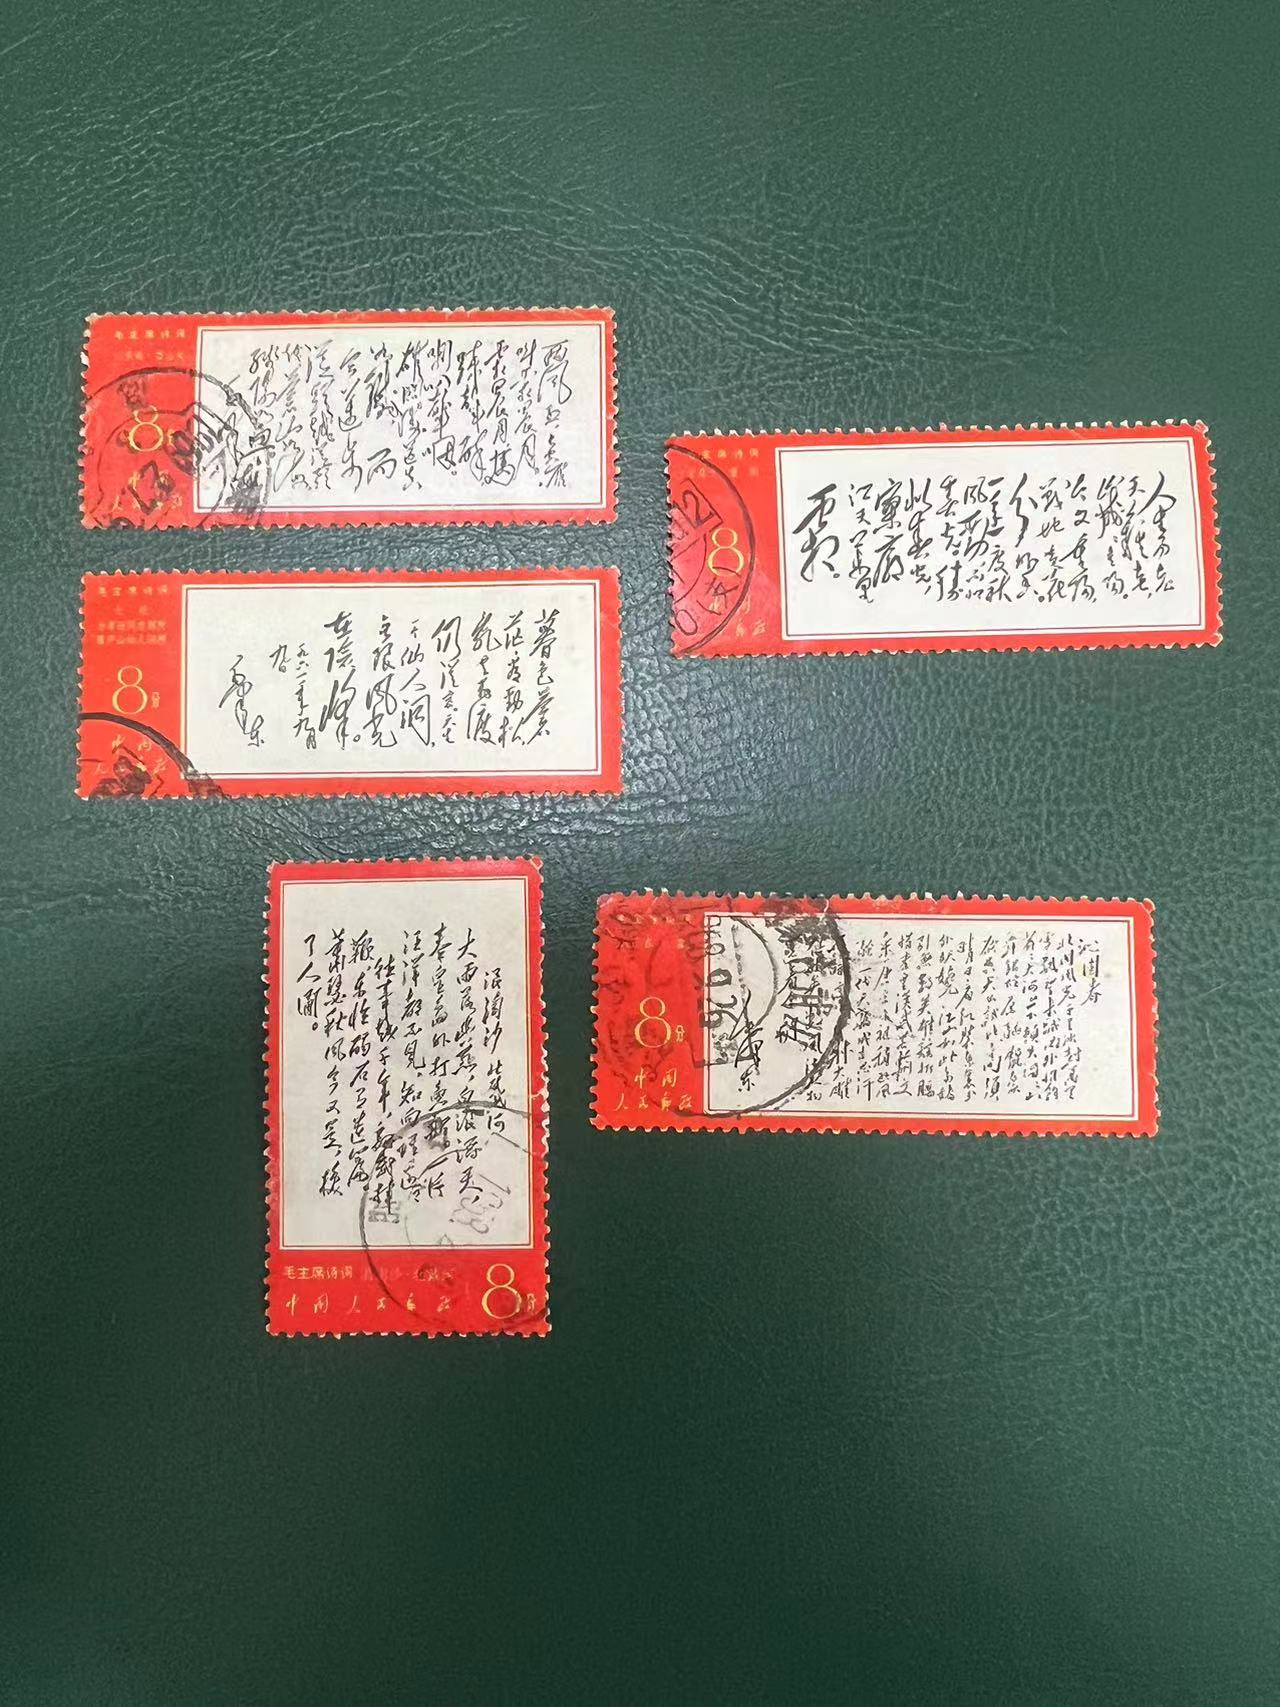 毛主席诗词
8分
中国
人民邮政
西风烈,长空雁
叫霜晨月。
霜晨月,马
蹄声碎,
喇叭声咽。
雄关漫道真
如铁,而
今迈步
从头越。从头越,
苍山如海,
残阳如血。
毛主席诗词
8
中国
人民邮政
人生易老
天难老,
岁岁重阳。
今又重阳,
战地黄花
分外香。
一年一度秋
风劲,不似
春光。胜
似春光,
寥廓
江天万里
霜。
毛主席诗词
七绝
为李进同志题所摄
庐山仙人洞照
8分
中国
人民邮政
暮色苍
茫看劲松,
乱云飞渡
仍从容。天生
一个仙人洞,
无限风光
在险峰。
一九六一年九月
九日
毛泽东
浪淘沙 北戴河
大雨落幽燕,白浪滔天,
秦皇岛外打鱼船。一片
汪洋都不见,知向谁边
往事越千年,魏武挥
鞭,东临碣石有遗篇。
萧瑟秋风今又是,换
了人间。
毛主席诗词 浪淘沙·北戴河
中国人民邮政 8分
8分
中国
人民邮政
沁园春
北国风光,千里冰封,万里
雪飘。望长城内外,惟余
莽莽大河上下,顿失滔滔。山
舞银蛇,原驰蜡象,
欲与天公试比高。须
晴日,看红装素裹,分
外妖娆。江山如此多娇,
引无数英雄竞折腰。
惜秦皇汉武,略输文
采,唐宗宋祖,稍逊风
骚。一代天骄,成吉思汗,
射大雕
数风流人物
毛泽东